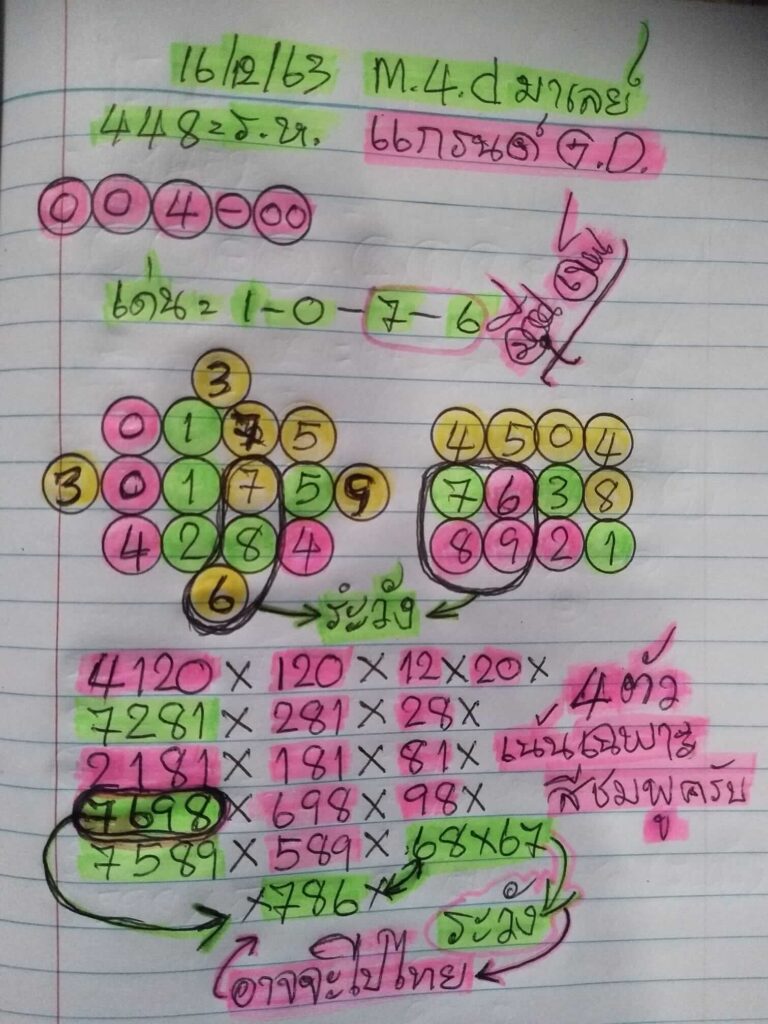 16/12/63 M.4.d มาเลย์
448=ร.ห. แกรนด์ G.D.
0 0 4 - 00
เด่น = 1-0-7-6
3
0 1 7 5 4 5 0 4
3 0 1 7 5 9 7 6 3 8
4 2 8 4 8 9 2 1
6
ระวัง
4120 × 120 × 12 × 20 ×
7281 × 281 × 28 × 4 ตัว
2181 × 181 × 81 × เน้นเฉพาะ
7698 × 698 × 98 × สีชมพูครับ
7589 × 589 × 68×67
×786×
ระวัง
อาจจะไปไทย